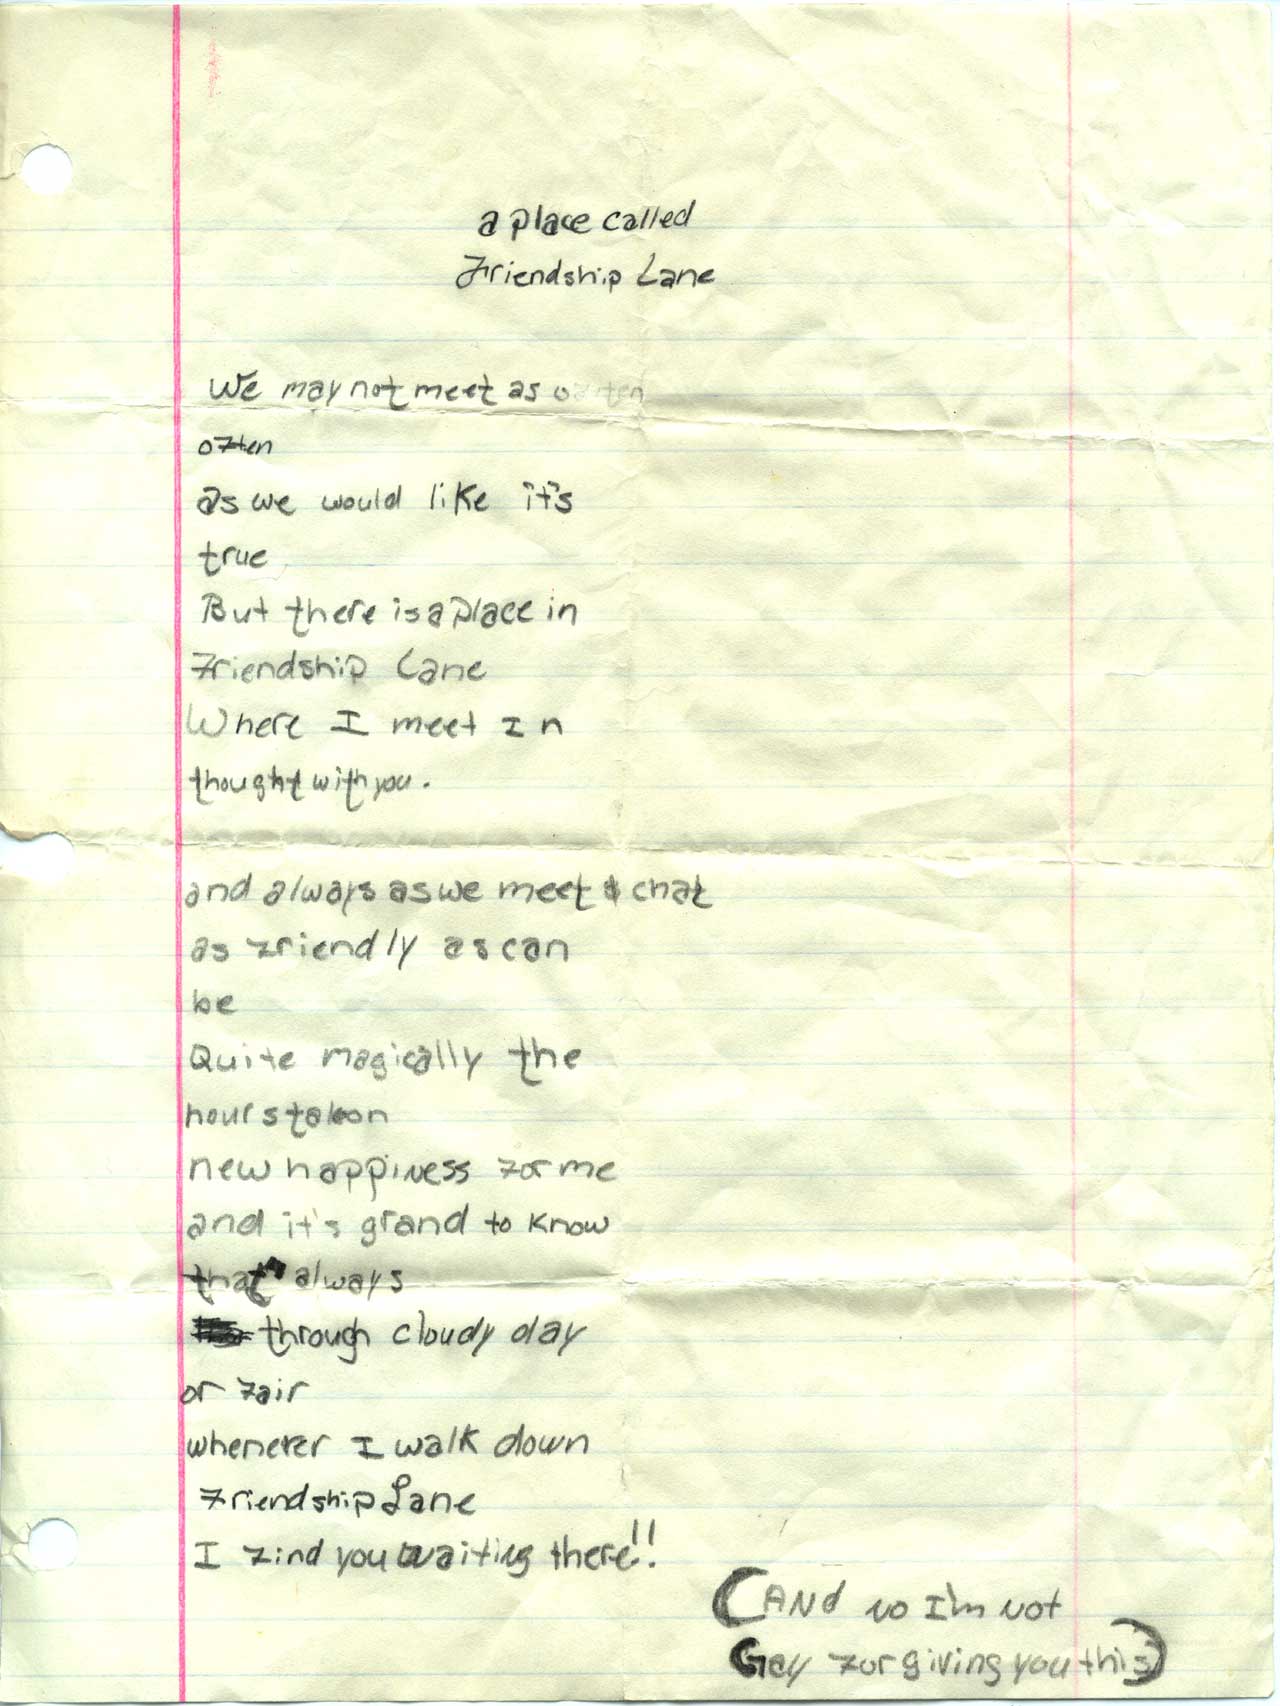 a place called
Friendship Lane
We may not meet as often
often
as we would like it's
true
But there is a place in
Friendship Lane
Where I meet In
thought with you.
and always as we meet & chat
as friendly as can
be
Quite magically the
hours take on
new happiness for me
and it's grand to know
that always
through cloudy day
or fair
whenever I walk down
Friendship Lane
I find you waiting there!!
(AND no I'm not
Gay for giving you this)